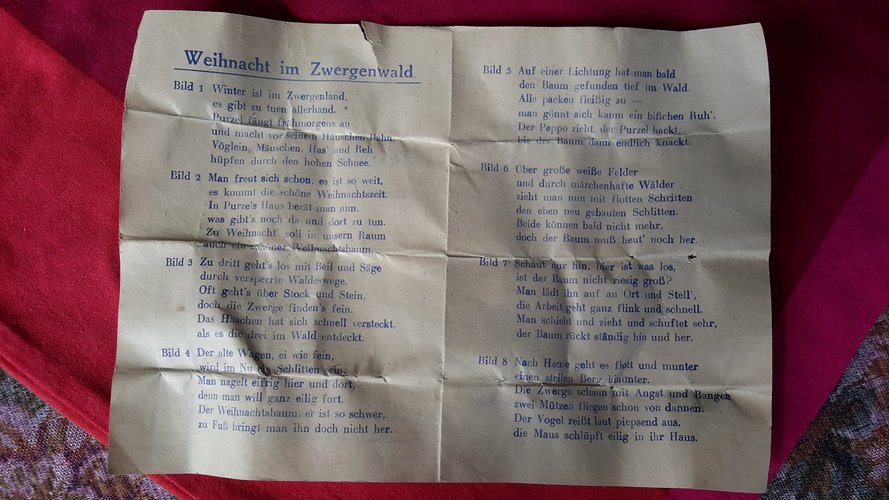 Weihnacht im Zwergenwald
Bild 1 Winter ist im Zwergenland,
es gibt zu tuen allerhand.
Purzel fängt frühmorgens an
und macht vor seinem Häuschen Bahn.
Vöglein, Mäuschen, Has' und Reh
hüpfen durch den hohen Schnee.
Bild 2 Man freut sich schon, es ist so weit,
es kommt die schöne Weihnachtszeit.
In Purzels Haus berät man nun,
was gibt's noch da und dort zu tun.
Zu Weihnacht' soll in unsern Raum
auch ein schöner Weihnachtsbaum.
Bild 3 Zu dritt geht's los mit Beil und Säge
durch versperrte Waldeswege.
Oft geht's über Stock und Stein,
doch die Zwerge finden's fein.
Das Häschen hat sich schnell versteckt,
als es die drei im Wald entdeckt.
Bild 4 Der alte Wagen, ei wie fein,
wird im Nu ein Schlitten sein.
Man nagelt eifrig hier und dort,
denn man will ganz eilig fort.
Der Weihnachtsbaum, er ist so schwer,
zu Fuß bringt man ihn doch nicht her.
Bild 5 Auf einer Lichtung hat man bald
den Baum gefunden tief im Wald.
Alle packen fleißig zu —
man gönnt sich kaum ein bißchen Ruh'.
Der Peppo zieht, der Purzel hackt,
bis der Baum dann endlich knackt.
Bild 6 Über große weiße Felder
und durch märchenhafte Wälder
zieht man nun mit flotten Schritten
den eben neu gebauten Schlitten.
Beide können bald nicht mehr,
doch der Baum muß heut' noch her.
Bild 7 Schaut nur hin, hier ist was los,
ist der Baum nicht riesig groß?
Man lädt ihn auf an Ort und Stell',
die Arbeit geht ganz flink und schnell.
Man schiebt und zieht und schuftet sehr,
der Baum rückt ständig hin und her.
Bild 8 Nach Hause geht es flott und munter
einen steilen Berg hinunter.
Die Zwerge schaun mit Angst und Bangen
zwei Mützen fliegen schon von dannen.
Der Vogel reißt laut piepsend aus,
die Maus schlüpft eilig in ihr Haus.